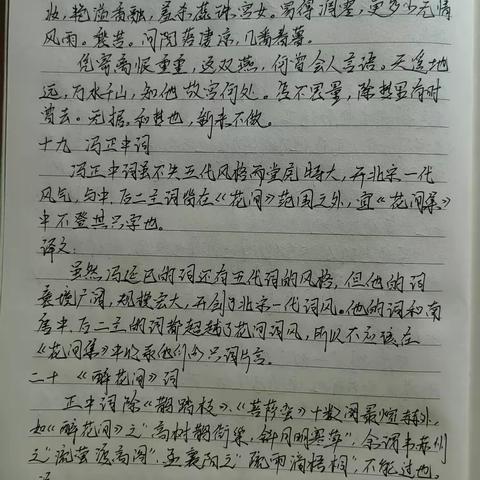 妆，艳溢香融，羞杀蕊珠宫女。易得凋零，更多少无情
风雨。愁苦。问院落凄凉，几番春暮。
凭寄离恨重重，这双燕，何曾会人言语。天遥地
远，万水千山，知他故宫何处。怎不思量，除梦里有时
曾去。无据。和梦也，新来不做。
十九 冯正中词
冯正中词虽不失五代风格而堂庑特大，开北宋一代
风气，与中、后二主词皆在《花间》范围之外，宜《花间集》
中不登其只字也。
译文：
虽然冯延巳的词还有五代词的风格，但他的词
意境广阔，规模宏大，开创了北宋一代词风。他的词和南
唐中、后二主的词都超越了花间词风，所以不应该在
《花间集》中收录他们的只词片言。
二十 《醉花间》词
正中词除《鹊踏枝》、《菩萨蛮》十数阕最煊赫外，
如《醉花间》之“高树鹊衔巢，斜月明寒草”，余谓韦苏州
之“流萤渡高阁”、孟襄阳之“疏雨滴梧桐”，不能过也。